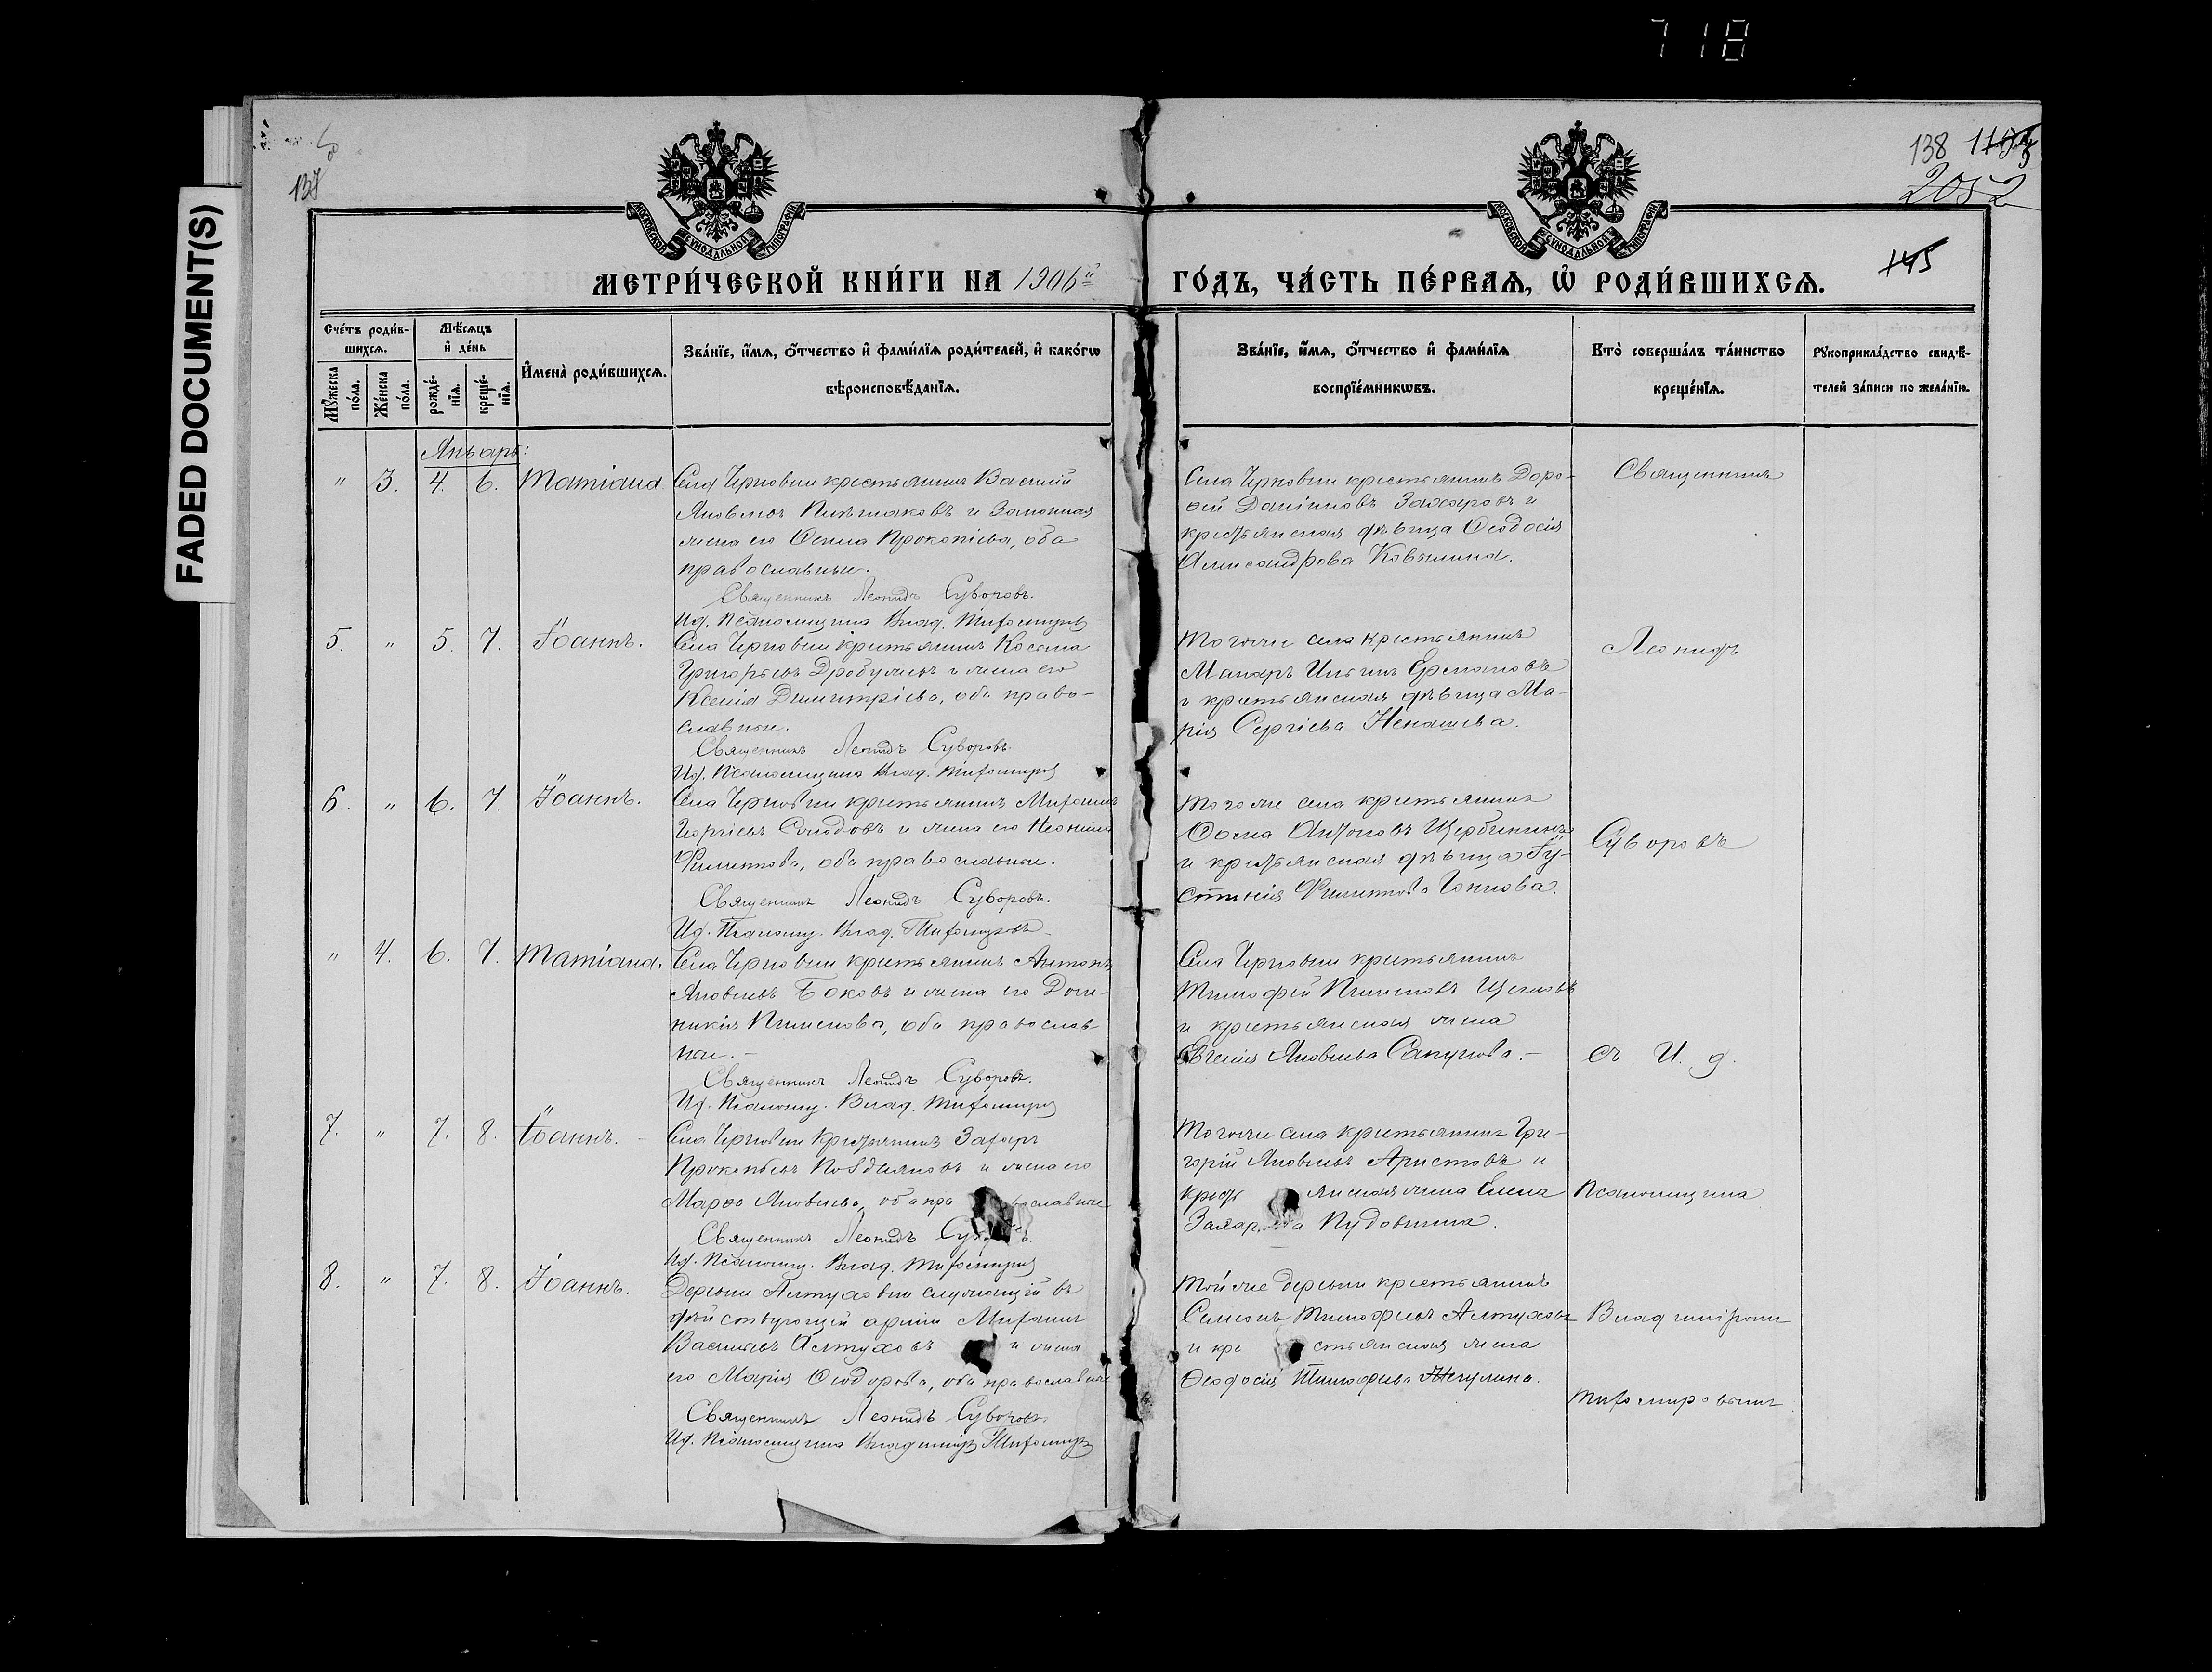 718
FADED DOCUMENT(S)
137
138
2052
145
МОСКОВСКОЙ СѴНОДАЛЬНОЙ ТИПОГРАФІИ
МОСКОВСКОЙ СѴНОДАЛЬНОЙ ТИПОГРАФІИ
МЕТРИ́ЧЕСКОЙ КНИ́ГИ НА 1906й ГО́ДЪ, ЧА́СТЬ ПЕ́РВАѦ, Ѡ҆ РОДИ́ВШИХСѦ.
Сче́тъ роди́в-
шихсѧ.
Мѣ́сѧцъ
и҆ де́нь
И҆мена̀ роди́вшихсѧ.
Зва́нїе, и҆́мѧ, о҆́тчество и҆ фами́лїѧ роди́телей, и҆ како́гѡ
вѣроисповѣ́данїѧ.
Зва́нїе, и҆́мѧ, о҆́тчество и҆ фами́лїѧ
воспрїе́мникѡвъ.
Кто̀ соверша́лъ та́инство
креще́нїѧ.
Рꙋкоприкла́дство свидѣ́-
телей за́писи по жела́нїю.
Мꙋ́жеска
по́ла.
Же́нска
по́ла.
рожде́-
нїѧ.
креще́-
нїѧ.
Январь:
" 3. 4. 6. Татіана.
Села Черновки крестьянинъ Василій
Яковлевъ и законная
жена его Прокопіева, оба
православные.
Священникъ Леонидъ Суворовъ.
Ид. Псаломщика Влад. Тихомировъ
Села Черновки крестьянинъ Доро-
ѳей Даніиловъ Захаровъ и
крестьянская дѣвица Ѳеодосія
Александрова
Священникъ
5. " 5. 7. Іоаннъ.
Села Черновки крестьянинъ Косьма
Григорьевъ и жена его
Ксенія Димитріева, оба право-
славные.
Священникъ Леонидъ Суворовъ.
Ид. Псаломщика Влад. Тихомировъ
Того же села крестьянинъ
Макаръ Ильинъ Ермаковъ
и крестьянская дѣвица Ма-
рія Сергіева Ненашева.
Леонидъ
6. " 6. 7. Іоаннъ.
Села Черновки крестьянинъ Митрофанъ
Георгіевъ Солодовъ и жена его
Филиппова, оба православные.
Священникъ Леонидъ Суворовъ.
Ид. Псаломщ. Влад. Тихомировъ
Того же села крестьянинъ
Ѳома Антоновъ Щербининъ
и крестьянская дѣвица Іу-
стинія Филиппова
Суворовъ
" 4. 6. 7. Татіана.
Села Черновки крестьянинъ Антонъ
Яковлевъ Боковъ и жена его Дом-
никія Пименова, оба православ-
ные.-
Священникъ Леонидъ Суворовъ.
Ид. Псаломщ. Влад. Тихомировъ
Села Черновки крестьянинъ
Тимофей Пименовъ
и крестьянская жена
Евгенія Яковлева Сапунова.-
съ И. д.
7. " 7. 8. Іоаннъ.
Села Черновки крестьянинъ Захаръ
Прокопьевъ и жена его
Марѳа Яковлева, оба православные
Священникъ Леонидъ
Ид. Псаломщ. Влад. Тихомировъ
Того же села крестьянинъ Гри-
горій Яковлевъ Аристовъ и
крестьянская жена Елена
Пудовкина.
Псаломщика
8. " 7. 8. Іоаннъ.
Деревни Алтуховки служащій въ
дѣйствующей арміи
Васильевъ Алтуховъ и жена
его Марія Ѳеодорова, оба православные
Священникъ Леонидъ Суворовъ.
Ид. Псаломщика Владиміръ Тихомировъ
Той же деревни крестьянинъ
Тимофеевъ Алтуховъ
и крестьянская жена
Ѳеодосія Тимофеева
Владиміромъ
Тихомировымъ.